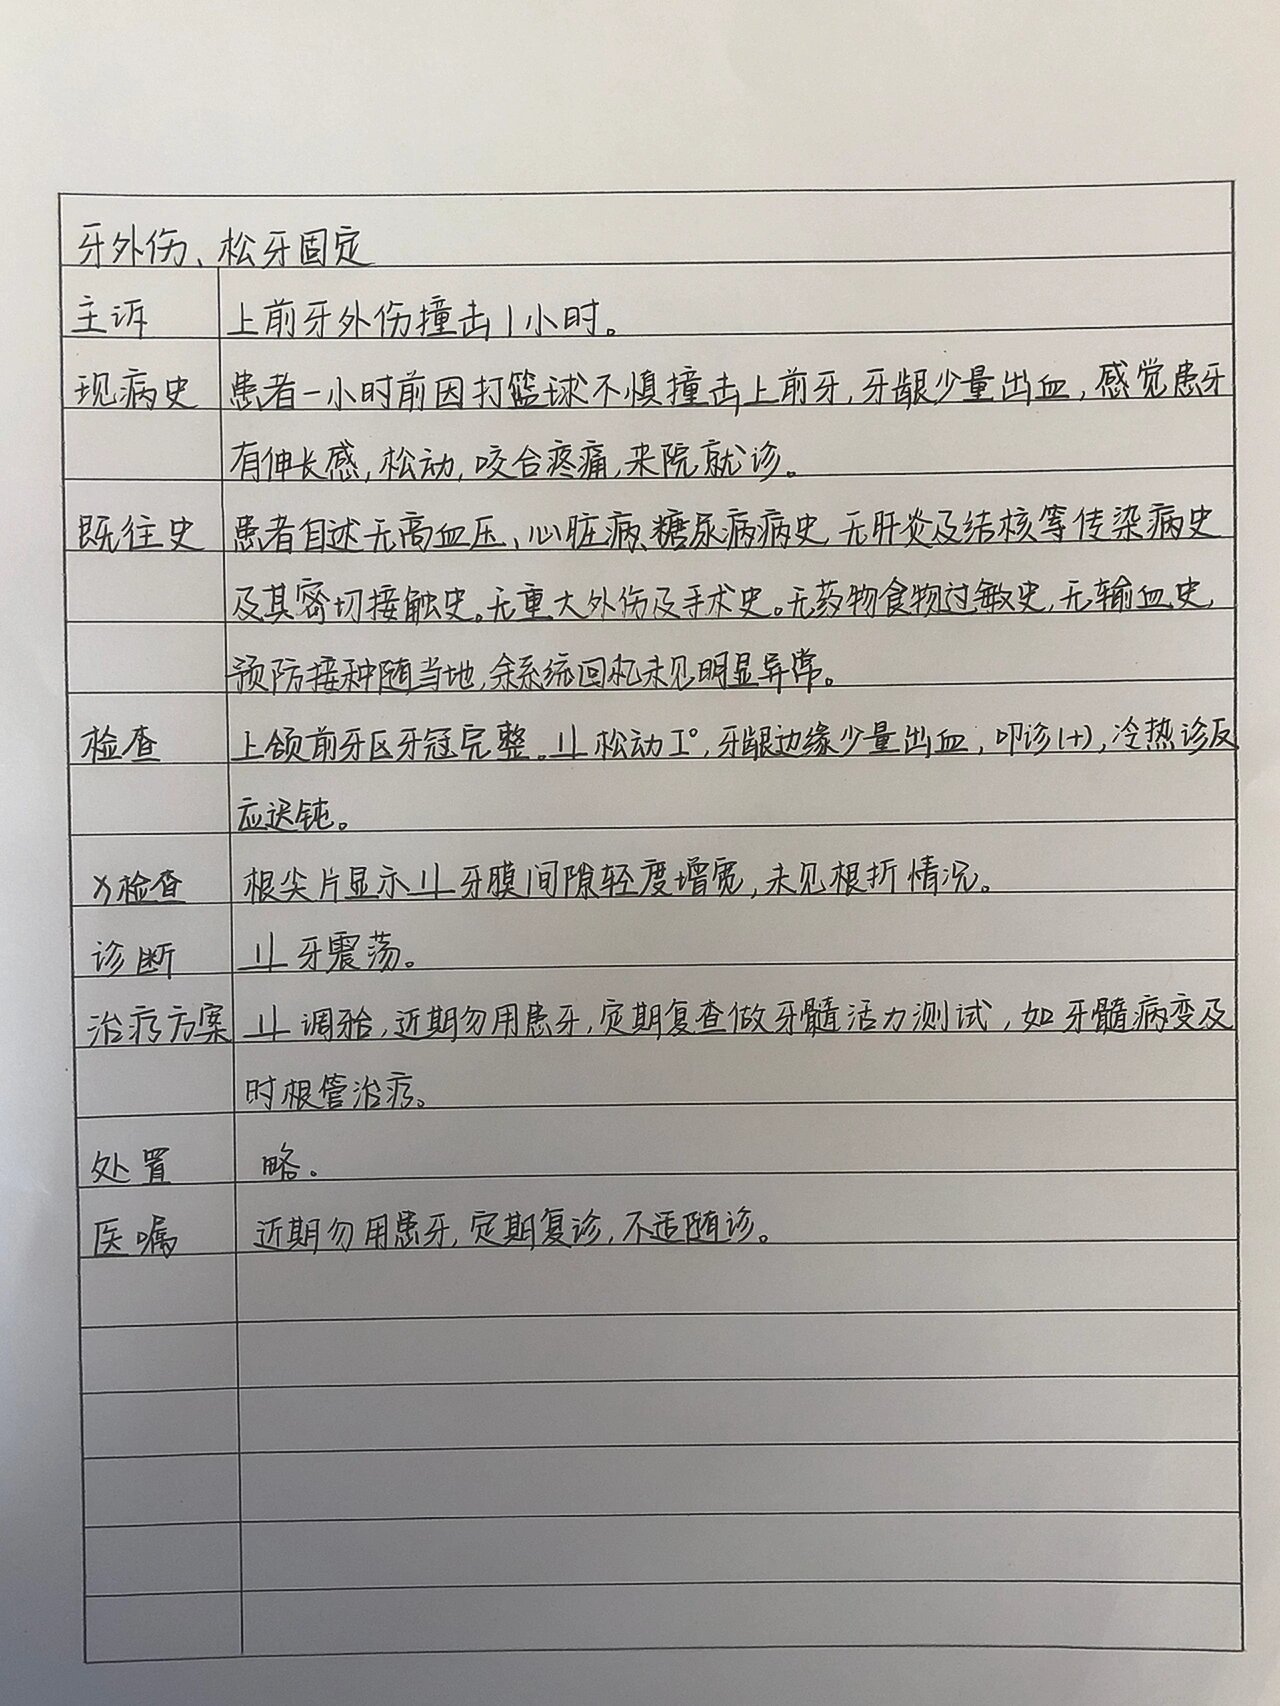 牙外伤、松牙固定
主诉 上前牙外伤撞击1小时。
现病史 患者一小时前因打篮球不慎撞击上前牙,牙龈少量出血,感觉患牙
有伸长感,松动,咬合疼痛,来院就诊。
既往史 患者自述无高血压、心脏病、糖尿病病史,无肝炎及结核等传染病史
及其密切接触史。无重大外伤及手术史。无药物食物过敏史,无输血史,
预防接种随当地,余系统回机未见明显异常。
检查 上颌前牙区牙冠完整。1⊥ 松动I°,牙龈边缘少量出血,叩诊(+),冷热诊反
应迟钝。
X检查 根尖片显示 1⊥ 牙膜间隙轻度增宽,未见根折情况。
诊断 1⊥ 牙震荡。
治疗方案 1⊥ 调𬌗,近期勿用患牙,定期复查做牙髓活力测试,如牙髓病变及
时根管治疗。
处置 略.
医嘱 近期勿用患牙,定期复诊,不适随诊。